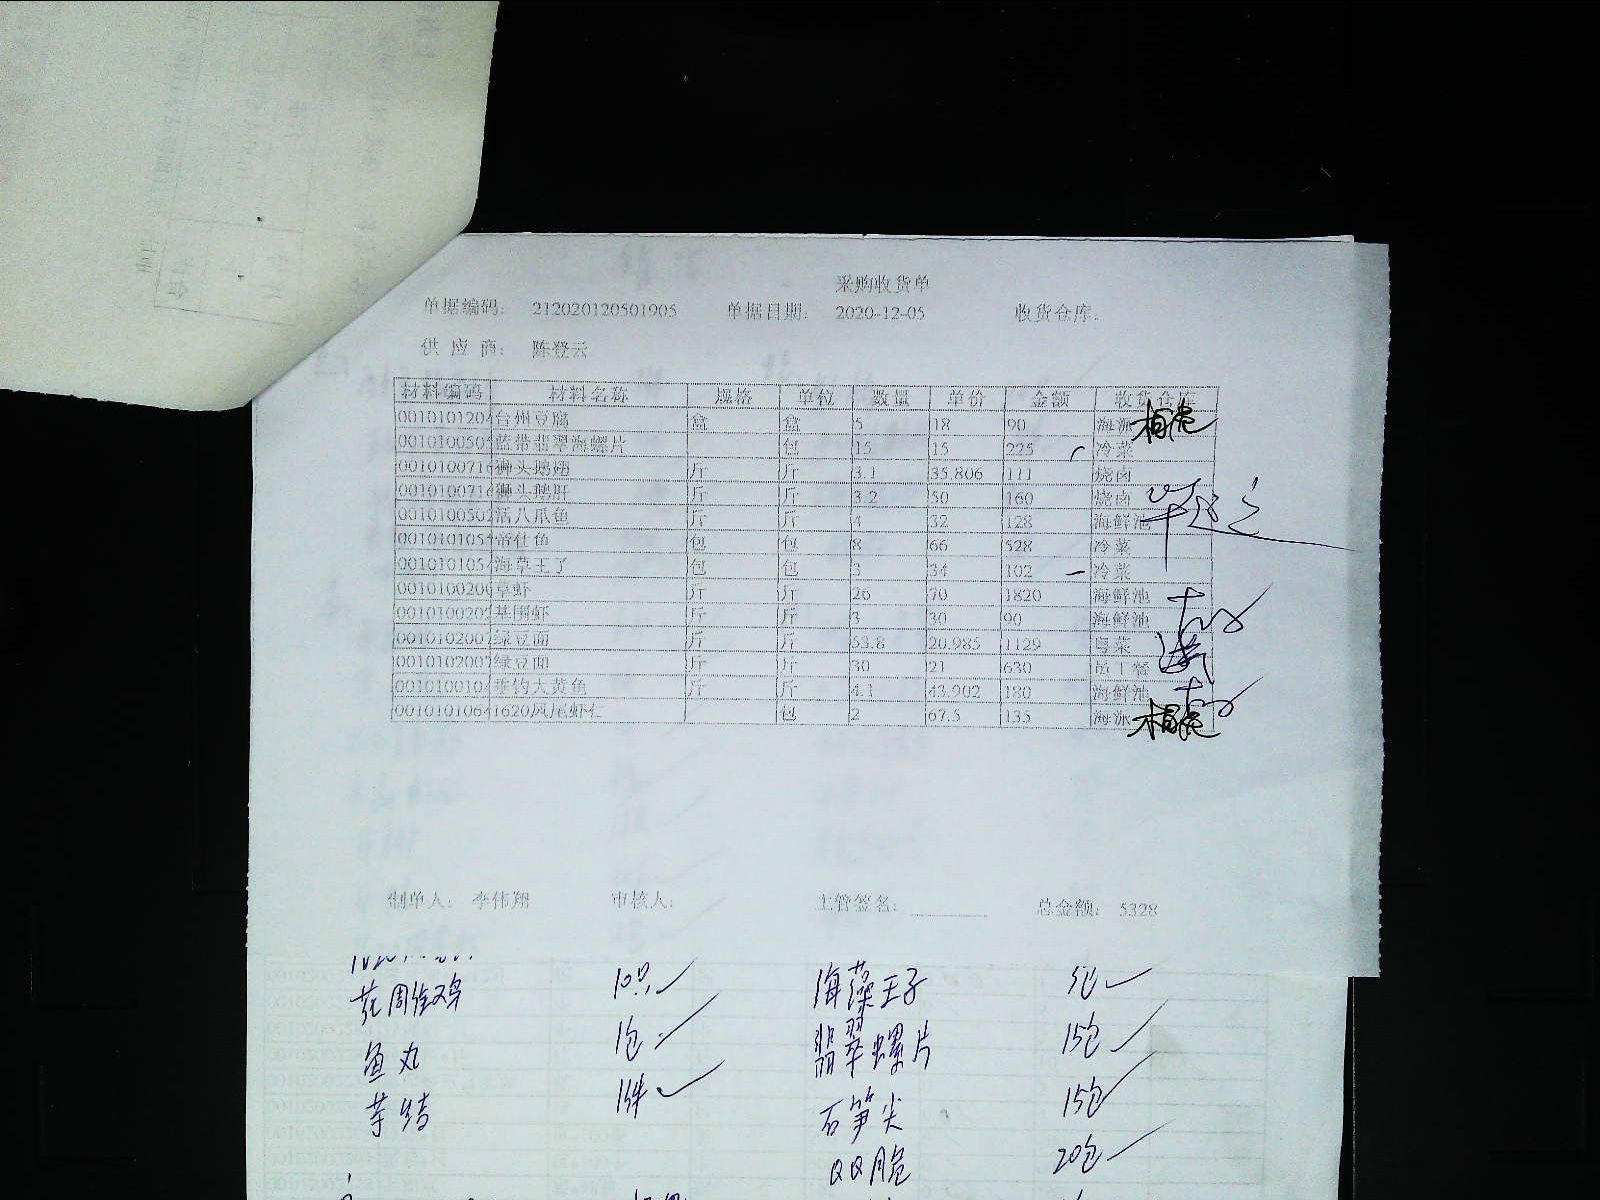 采购收货单
单据编码: 212020120501905 单据日期: 2020-12-05 收货仓库:
供应商: 陈登云
材料编码 材料名称 规格 单位 数量 单价 金额 收货仓库
0010101204 台州豆腐 盒 盒 5 18 90 海派
0010100505 蓝带翡翠海螺片 包 15 15 225 冷菜
0010100716 狮头鹅翅 斤 斤 3.1 35.806 111 烧卤
0010100716 狮头鹅肝 斤 斤 3.2 50 160 烧卤
0010100502 活八爪鱼 斤 斤 4 32 128 海鲜池
0010101054 希仕鱼 包 包 8 66 528 冷菜
0010101054 海草王子 包 包 3 34 102 冷菜
0010100206 草虾 斤 斤 26 70 1820 海鲜池
0010100202 基围虾 斤 斤 3 30 90 海鲜池
0010102007 绿豆面 斤 斤 53.8 20.985 1129 粤菜
0010102007 绿豆面 斤 斤 30 21 630 员工餐
0010100104 垂钓大黄鱼 斤 斤 4.1 43.902 180 海鲜池
0010101064 1620凤尾虾仁 包 2 67.5 135 海派
制单人: 李伟翔 审核人: 主管签名: 总金额: 5328
海藻王子
鱼丸 1包 翡翠螺片 15包
石笋尖 15包
QQ脆 20包